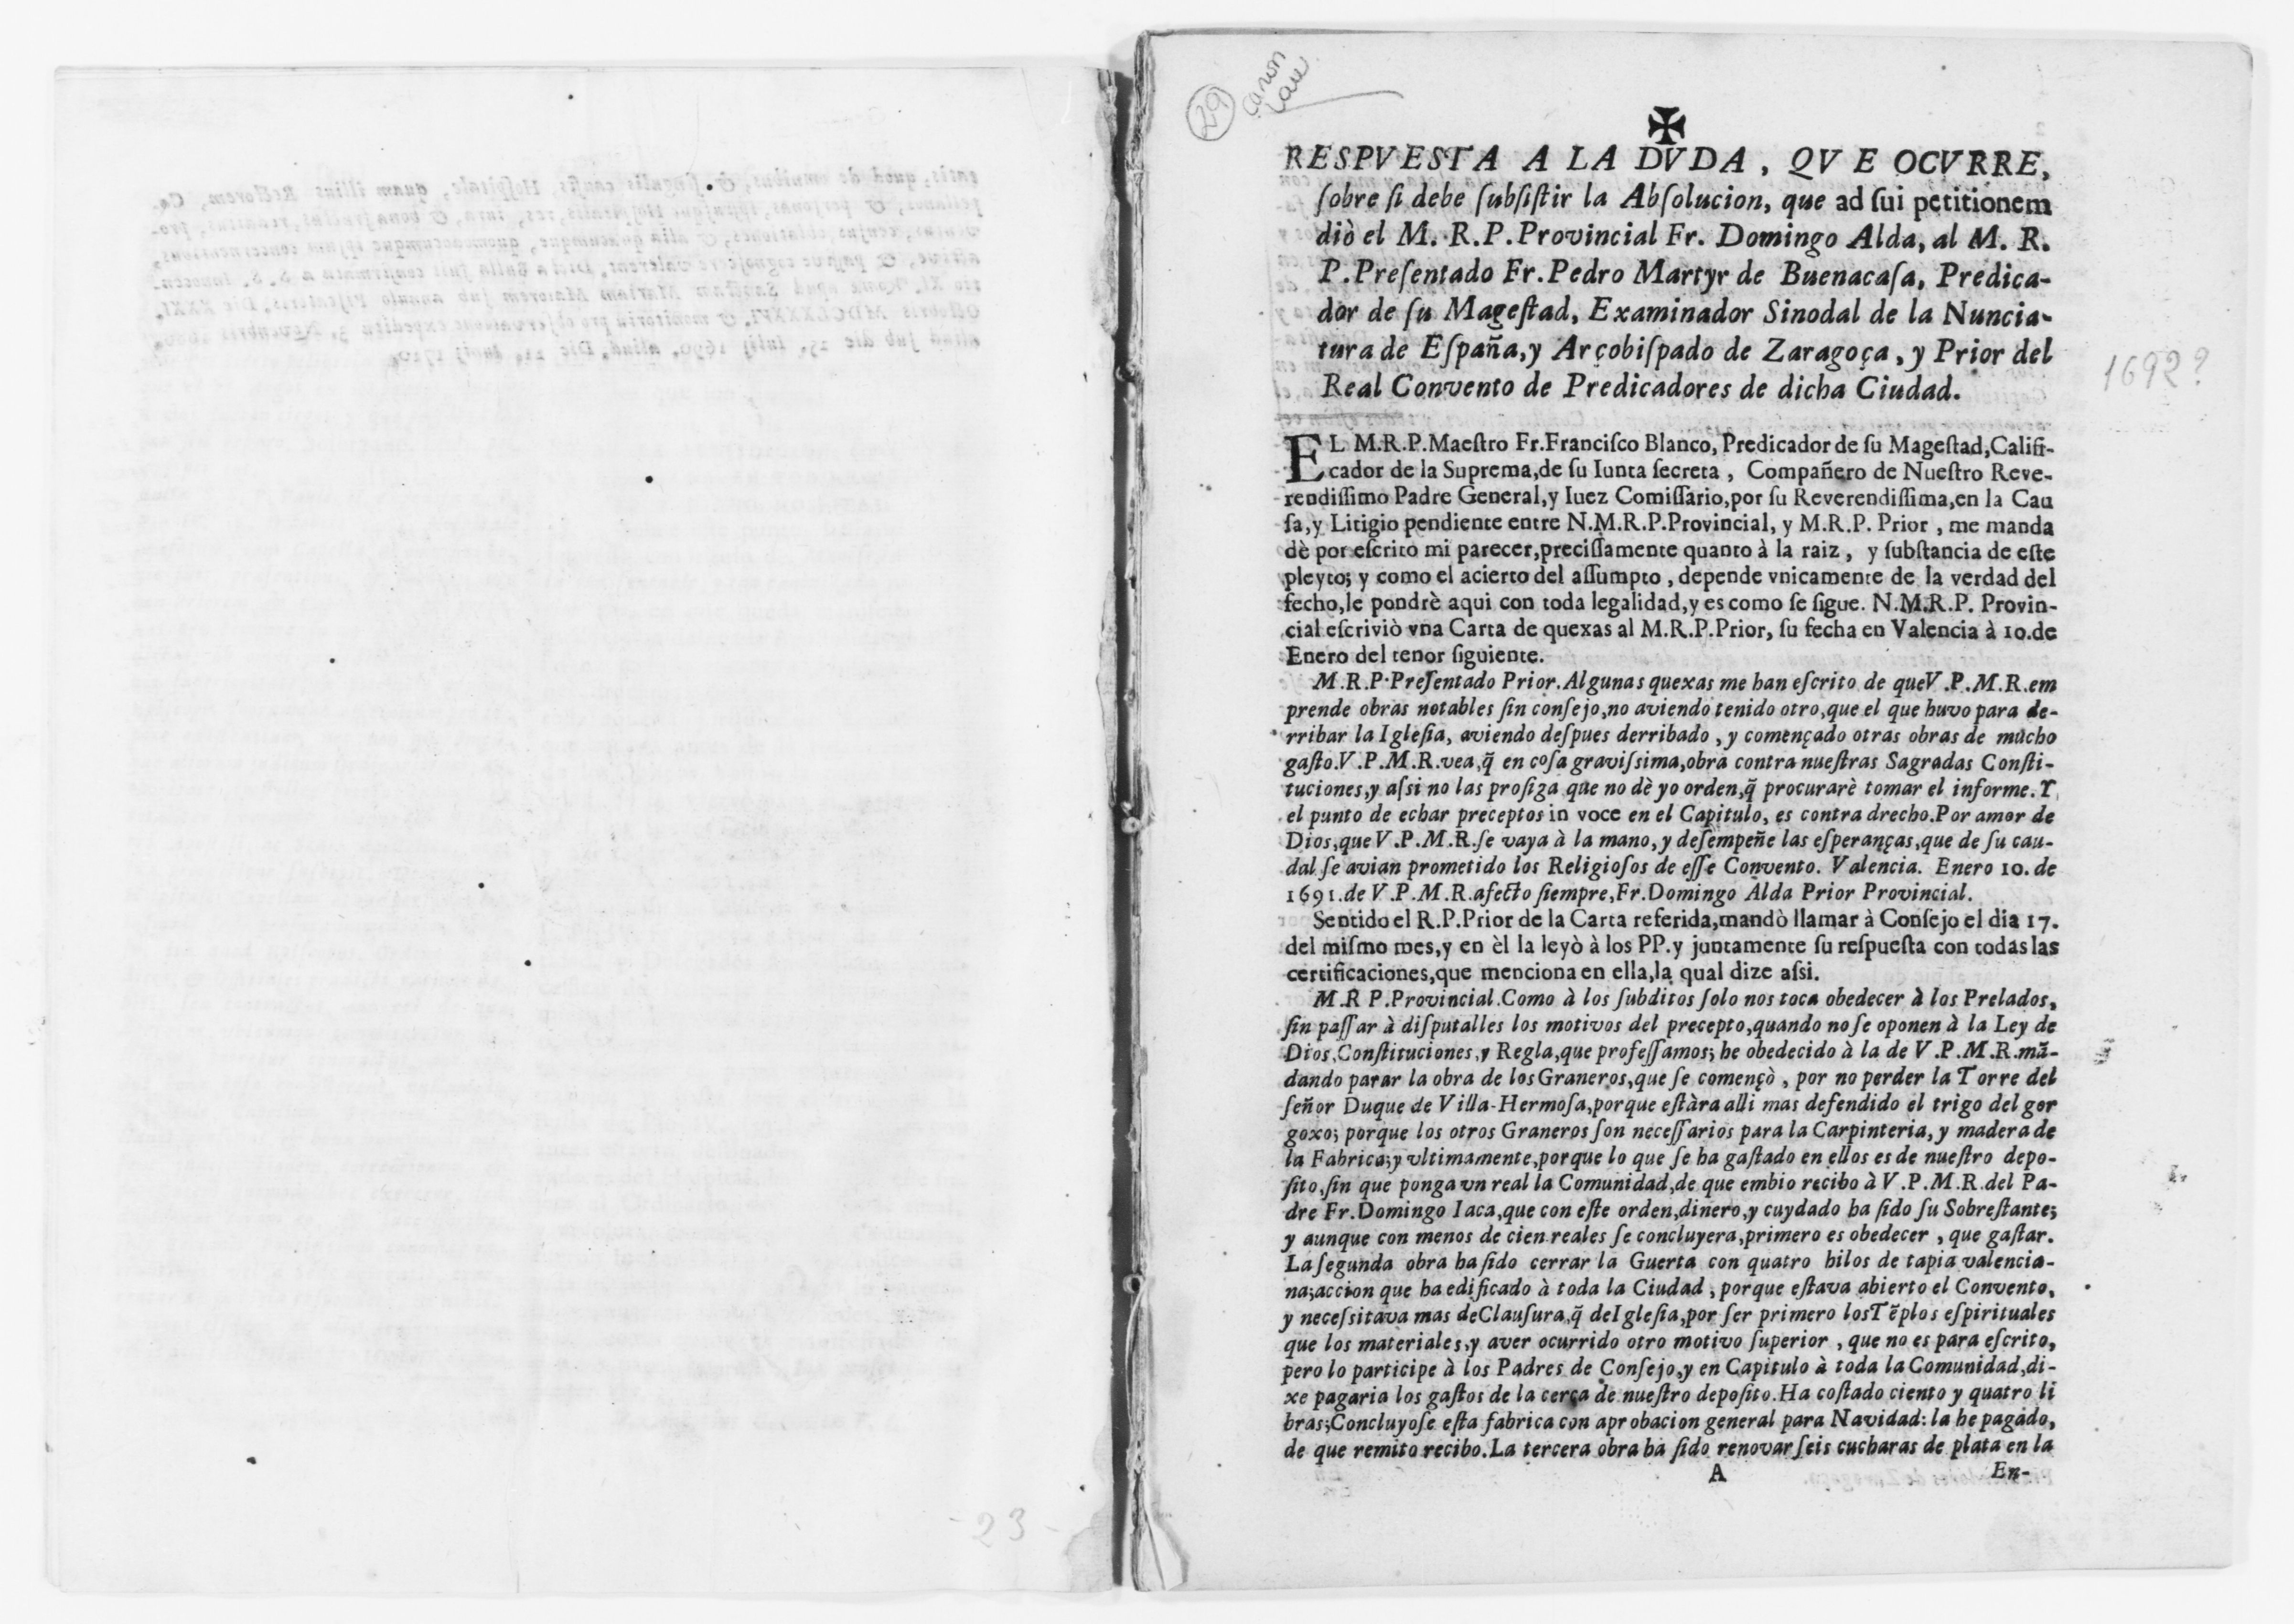 29
Canon
Law
✠
RESPVESTA A LA DVDA, QVE OCVRRE,
ſobre ſi debe ſubſiſtir la Abſolucion, que ad ſui petitionem
diò el M. R. P. Provincial Fr. Domingo Alda, al M. R.
P. Preſentado Fr. Pedro Martyr de Buenacaſa, Predica-
dor de ſu Mageſtad, Examinador Sinodal de la Nuncia-
tura de Eſpaña, y Arçobiſpado de Zaragoça, y Prior del
Real Convento de Predicadores de dicha Ciudad.
1692?
EL M.R.P.Maeſtro Fr.Franciſco Blanco, Predicador de ſu Mageſtad, Califi-
cador de la Suprema, de ſu Iunta ſecreta, Compañero de Nueſtro Reve-
rendiſſimo Padre General, y Iuez Comiſſario, por ſu Reverendiſſima, en la Cau
ſa, y Litigio pendiente entre N.M.R.P.Provincial, y M.R.P. Prior, me manda
dè por eſcrito mi parecer, preciſſamente quanto à la raiz, y ſubſtancia de eſte
pleyto; y como el acierto del aſſumpto, depende vnicamente de la verdad del
fecho, le pondrè aqui con toda legalidad, y es como ſe ſigue. N.M.R.P. Provin-
cial eſcriviò vna Carta de quexas al M.R.P.Prior, ſu fecha en Valencia à 10.de
Enero del tenor ſiguiente.
M.R.P.Preſentado Prior. Algunas quexas me han eſcrito de que V.P.M.R.em
prende obras notables ſin conſejo, no aviendo tenido otro, que el que huvo para de-
rribar la Igleſia, aviendo deſpues derribado, y començado otras obras de mucho
gaſto. V.P.M.R.vea, q̃ en coſa graviſsima, obra contra nueſtras Sagradas Conſti-
tuciones, y aſsi no las proſiga que no dè yo orden, q̃ procurarè tomar el informe. Y
el punto de echar preceptos in voce en el Capitulo, es contra drecho. Por amor de
Dios, que V.P.M.R.ſe vaya à la mano, y deſempeñe las eſperanças, que de ſu cau-
dal ſe avian prometido los Religioſos de eſſe Convento. Valencia. Enero 10. de
1691.de V.P.M.R.afecto ſiempre, Fr.Domingo Alda Prior Provincial.
Sentido el R.P.Prior de la Carta referida, mandò llamar à Conſejo el dia 17.
del miſmo mes, y en èl la leyò à los PP. y juntamente ſu reſpueſta con todas las
certificaciones, que menciona en ella, la qual dize aſsi.
M.R P.Provincial. Como à los ſubditos ſolo nos toca obedecer à los Prelados,
ſin paſſar à diſputalles los motivos del precepto, quando no ſe oponen à la Ley de
Dios, Conſtituciones, y Regla, que profeſſamos; he obedecido à la de V.P.M.R.mã-
dando parar la obra de los Graneros, que ſe començò, por no perder la Torre del
ſeñor Duque de Villa-Hermoſa, porque eſtàra alli mas defendido el trigo del gor
goxo; porque los otros Graneros ſon neceſſarios para la Carpinteria, y madera de
la Fabrica; y vltimamente, porque lo que ſe ha gaſtado en ellos es de nueſtro depo-
ſito, ſin que ponga vn real la Comunidad, de que embio recibo à V.P.M.R.del Pa-
dre Fr.Domingo Iaca, que con eſte orden, dinero, y cuydado ha ſido ſu Sobreſtante;
y aunque con menos de cien reales ſe concluyera, primero es obedecer, que gaſtar.
La ſegunda obra ha ſido cerrar la Guerta con quatro hilos de tapia valencia-
na; accion que ha edificado à toda la Ciudad, porque eſtava abierto el Convento,
y neceſsitava mas de Clauſura, q̃ de Igleſia, por ſer primero los Tẽplos eſpirituales
que los materiales, y aver ocurrido otro motivo ſuperior, que no es para eſcrito,
pero lo participe à los Padres de Conſejo, y en Capitulo à toda la Comunidad, di-
xe pagaria los gaſtos de la cerca de nueſtro depoſito. Ha coſtado ciento y quatro li
bras; Concluyoſe eſta fabrica con aprobacion general para Navidad: la he pagado,
de que remito recibo. La tercera obra ha ſido renovar ſeis cucharas de plata en la
A
En-
23